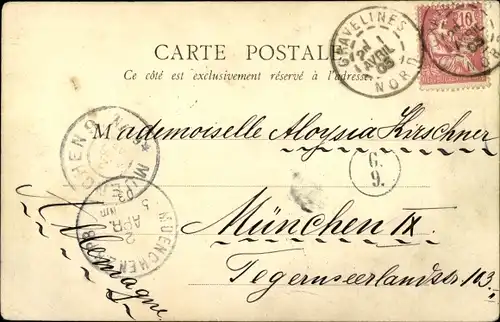 CARTE POSTALE
Ce côté est exclusivement réservé à l'adresse.
GRAVELINES
1
AVRIL
03
NORD
10
Mademoiselle Aloysia Kirschner
G.
9.
München IX.
Tegernseerlandstr 103.
Allemagne
MUENCHEN
2
APR.
5